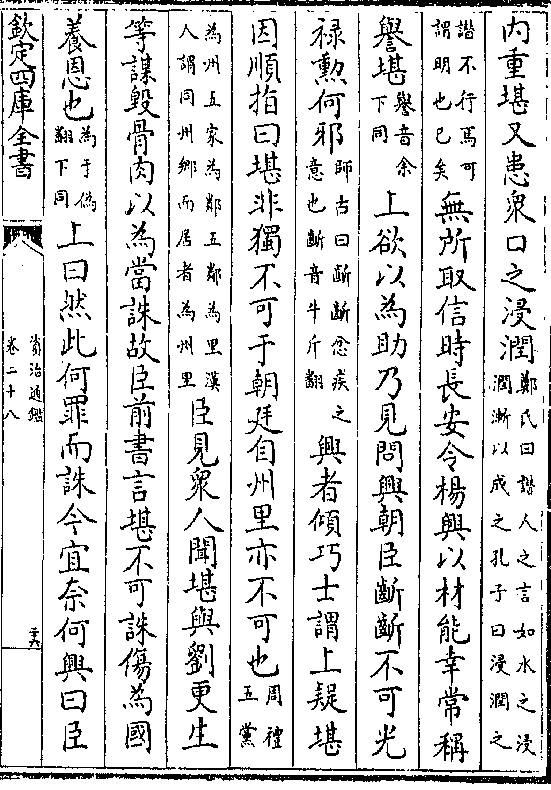 内重堪又患衆口之浸潤鄭氏曰譖人之言如水之浸潤漸以成之孔子曰浸潤之
譖不行焉可謂明也已矣無所取信時長安令楊興以材能幸常稱
譽堪譽音余下同上欲以為助乃見問興朝臣齗齗不可光
禄勲何邪師古曰齗齗忿疾之意也齗音牛斤翻興者傾巧士謂上疑堪
因順指曰堪非獨不可于朝廷自州里亦不可也周禮五黨
為州五家為鄰五鄰為里漢人謂同州鄉而居者為州里臣見衆人聞堪與劉更生
等謀毀骨肉以為當誅故臣前書言堪不可誅傷為國
養恩也為于偽翻下同上曰然此何罪而誅今宜奈何興曰臣
欽定四庫全書
資治通鑑
卷二十八